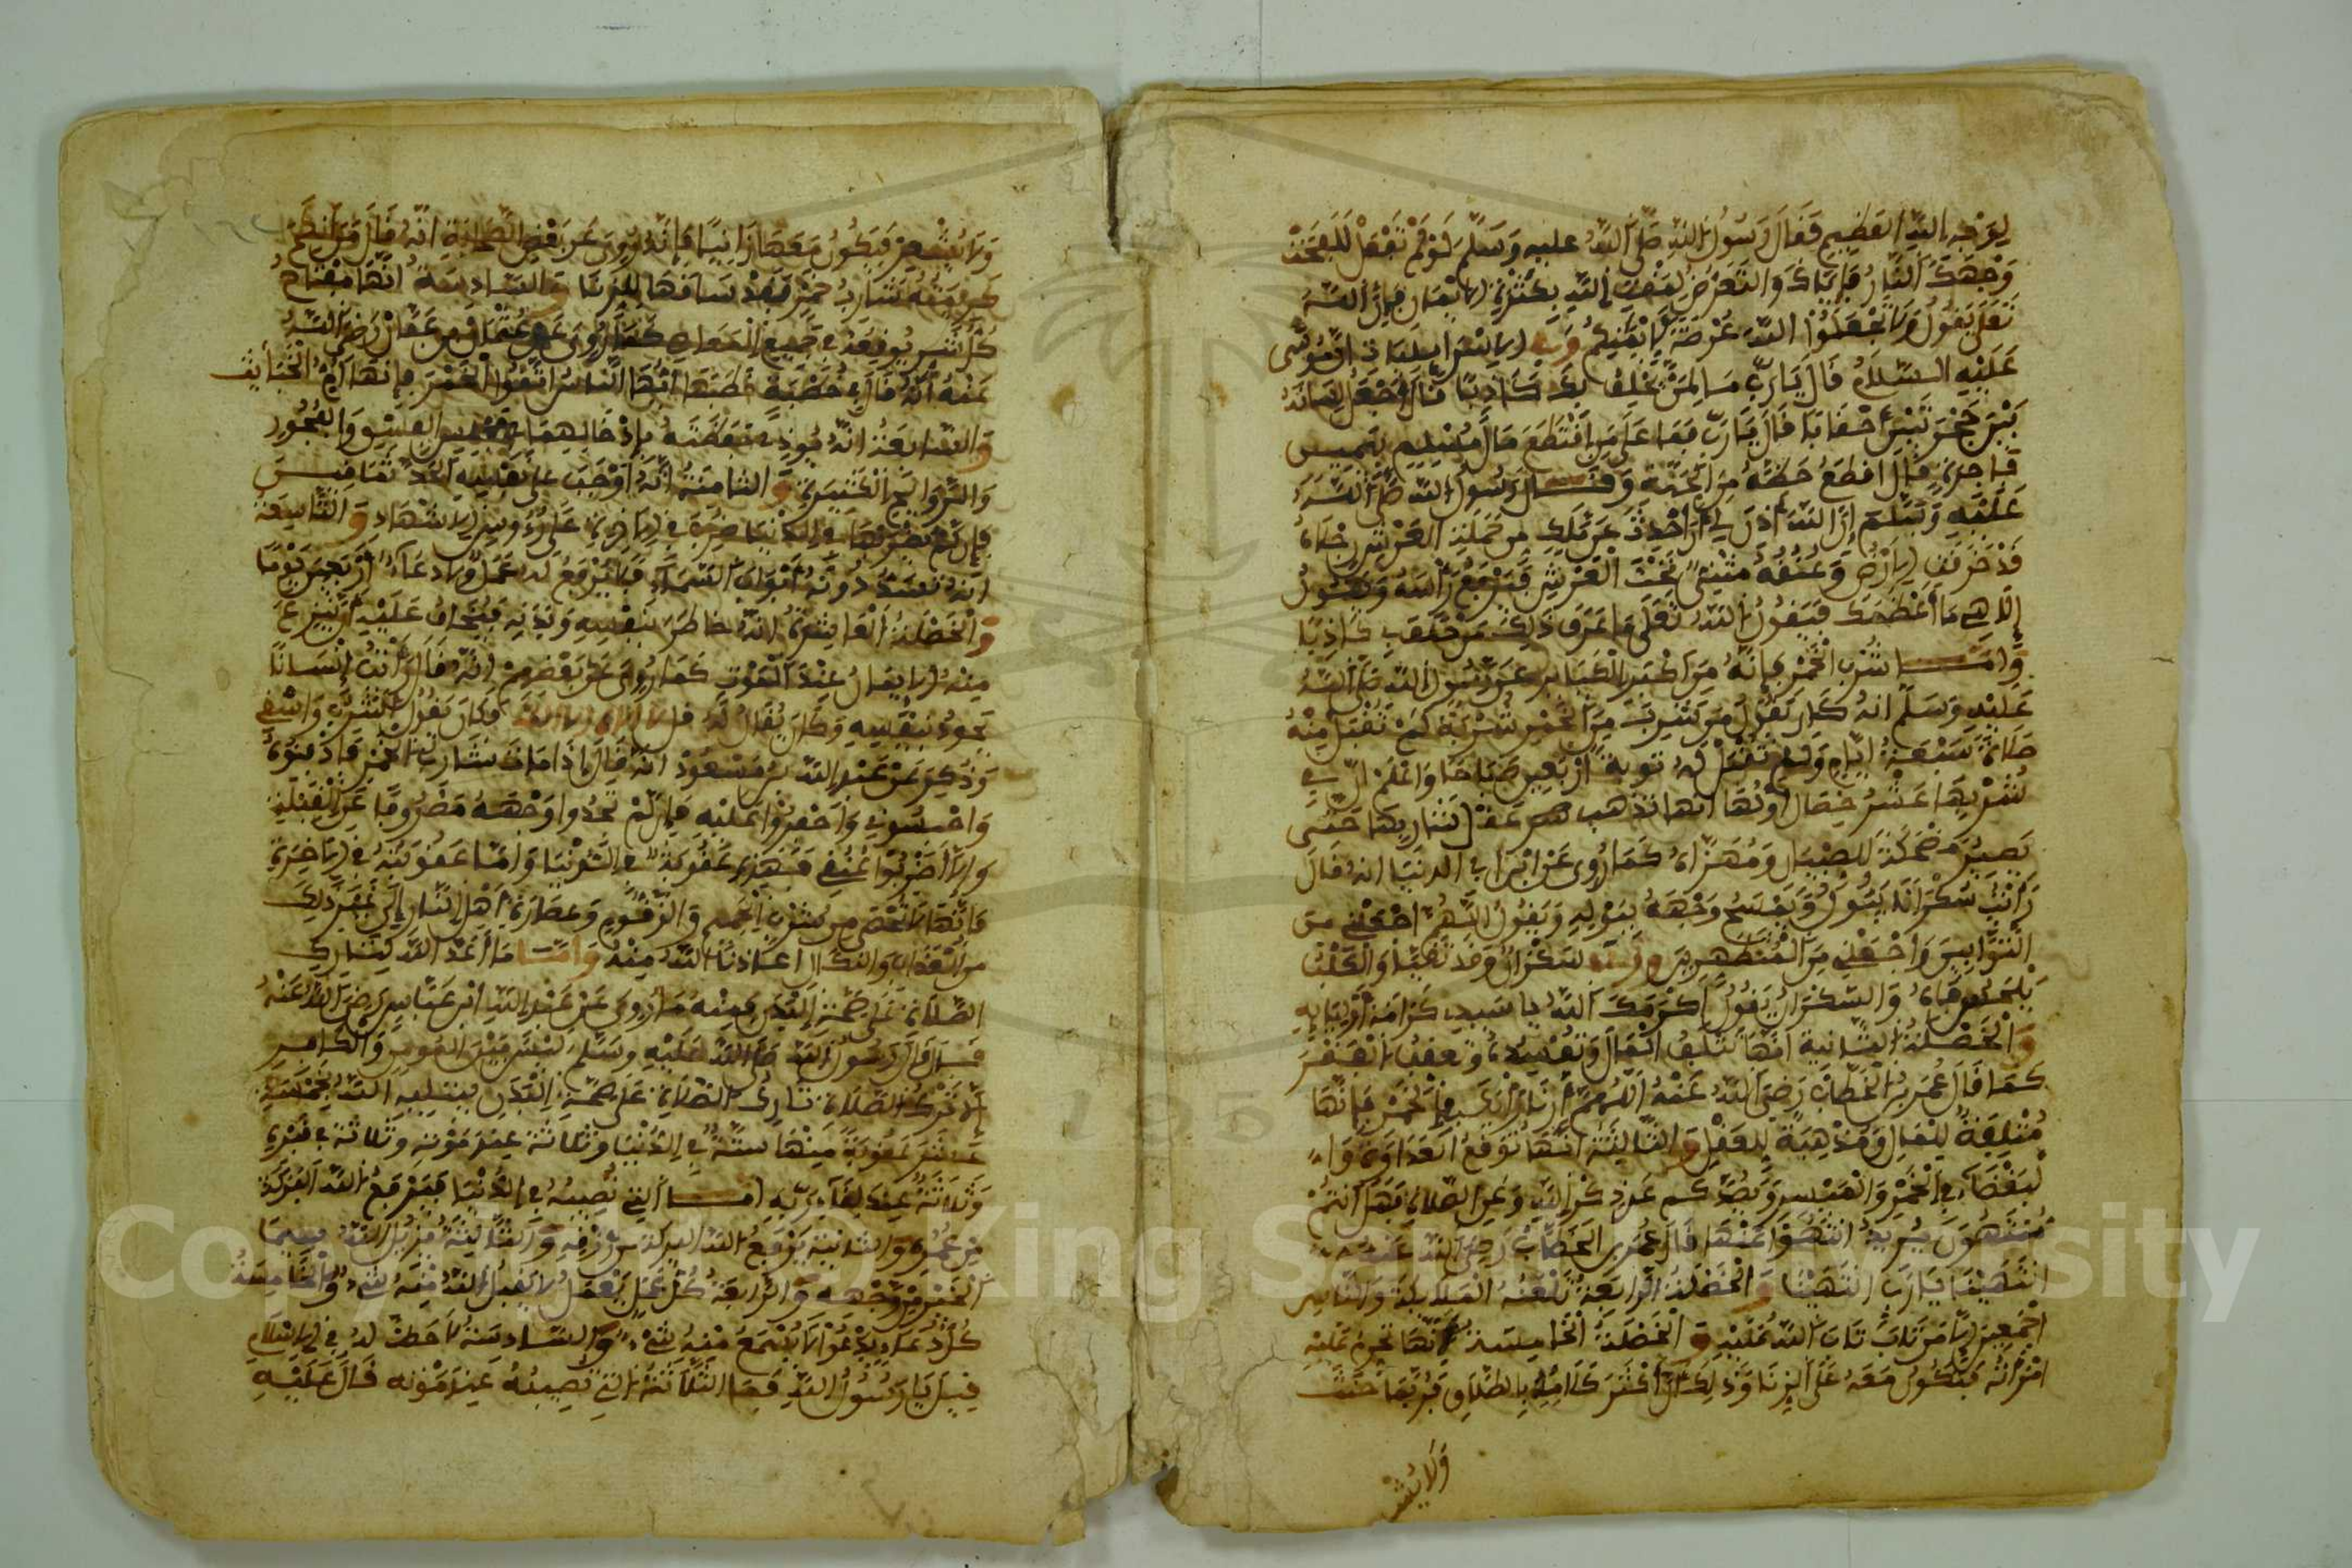 لِوَجْهِ اللَّهِ الْعَظِيمِ فَقَالَ رَسُولُ اللَّهِ صَلَّى اللَّهُ عليه وَسَلَّمَ لَوْ لَمْ تَفْعَلْ لَلَفَحَتْ
وَجْهَكَ النَّارُ فَإِيَّاكَ وَالتَّعَرُّضَ لِمَقْتِ اللَّهِ بِكَثْرَةِ الايْمَانِ فَإِنَّ اللَّهَ
تَعَلَى يَقُولُ وَلَا تَجْعَلُوا اللَّهَ عُرْضَةً لِأَيْمَانِكُمْ وَفِي الاسْرَائِيلِيَاتِ أَنَّ مُوسَى
عَلَيْهِ السَّلَامُ قَالَ يَارَبِّ مَا لِمَنْ يَحْلِفُ بِكَ كَاذِبًا قَالَ أَجْعَلُ لِسَانَهُ
بَيْنَ جَمْرَتَيْنِ أَحْقَابًا قَالَ يَا رَبِّ فَمَا عَلَى مَنِ اقْتَطَعَ مَالَ مُسْلِمٍ بِيَمِينٍ
فَاجِرَةٍ قَالَ اقْطَعُ حَظَّهُ مِنَ الْجَنَّةِ وَقَالَ رَسُولُ اللَّهِ صَلَّى اللَّهُ
عَلَيْهِ وَسَلَّمَ إِنَّ اللَّهَ أَذِنَ لِي أَنْ أُحَدِّثَ عَنْ مَلَكٍ مِنْ حَمَلَةِ الْعَرْشِ رِجْلَاهُ
قَدْ خَرَقَتِ الارْضَ وَعُنُقُهُ مُثْنِيٌّ تَحْتَ الْعَرْشِ فَيَرْفَعُ رَأْسَهُ وَيَقُولُ
إِلَاهِي مَا أَعْظَمَكَ فَيَقُولُ اللَّهُ تَعَلَى مَا عَرَفَ ذَلِكَ مَنْ حَلَفَ بِي كَاذِبًا
وَأَمَّا شُرْبُ الْخَمْرِ فَإِنَّهُ مِنْ أَكْبَرِ الْكَبَائِرِ عَنْ رَسُولِ اللَّهِ صَلَّى اللَّهُ
عَلَيْهِ وَسَلَّمَ انهُ كَانَ يَقُولُ مَنْ شَرِبَ مِنَ الْخَمْرِ شَرْبَةً لَمْ تُقْبَلْ مِنْهُ
صَلَاةٌ سَبْعَةَ أَيَّامٍ وَلَمْ تُقْبَلْ لَهُ تَوْبَةً أَرْبَعِينَ صَبَاحًا وَاعْلَمْ انَّ فِي
شُرْبِهَا عَشْرُ خِصَالٍ أَوَّلُهَا انها تَذْهَبُ عَقْلَ شَارِبِهَا حَتَّى
يَصِيرُ مَضْحَكَةً لِلصِّبْيَانِ وَمُهْزَأَهُ كَمَا رُوِيَ عَنِ ابْنِ أَبِي الدُّنْيَا انه قَالَ
رَأَيْتُ سَكْرَانًا يَبُولُ وَيَمْسَحُ وَجْهَهُ بِبَوْلِهِ وَيَقُولُ اللَّهُمَّ اجْعَلْنِي مِنَ
التَّوَّابِينَ وَاجْعَلْنِي مِنَ الْمُتَطَهِّرِينَ سَكْرَانُ وَقَدْ تَقَيَّأَ وَالْكَلْبُ
يَلْحَسُ فَاهُ وَالسَّكْرَانُ يَقُولُ أَكْرَمَكَ اللَّهُ يا سَيِّدِي كَرَامَةَ أَوْلِيَائِهِ
وَالْخَصْلَةُ الثَّانِيَةُ انَّهَا تُتْلِفُ الْمَالَ وَتُفْسِدُهُ وَتُعْقِبُ الْفَقْرَ
كَمَا قَالَ عُمَرُ بْنُ الْخَطَّابِ رَضِيَ اللَّهُ عَنْهُ اللَّهُمَّ أَرِنَا رَأْيَكَ فِي الْخَمْرِ فَإِنَّهَا
مُتْلِفَةٌ لِلْمَالِ وَمُذْهِبَةٌ لِلْعَقْلِ وَالثَّالِثَةُ انَّهَا تُوقِعُ الْعَدَاوَةَ وَالْ
بَغْضَاءَ فِي الْخَمْرِ وَالْمَيْسِرِ وَيَصُدَّكُمْ عَنْ ذِكْرِ اللَّهِ وَعَنِ الصَّلَاةِ فَهَلْ أَنْتُمْ
مُنْتَهُونَ يُرِيدُ انْتَهُوا عَنْهَا قَالَ عُمَرُ بن الْخَطَّابِ رَضِيَ اللَّهُ عَنْهُ
انْتَهَيْنَا يَا رَبِّ انْتَهَيْنَا وَالْخَصْلَةُ الرَّابِعَةُ تَلْعَنُهُ الْمَلَائِكَةُ وَالنَّاسُ
أَجْمَعِينَ إِلَّا مَنْ تَابَ تَابَ اللَّهُ عَلَيْهِ وَالْخَصْلَةُ الْخَامِسَةُ أَنَّهَا تُحْرِمُ عَلَيْهِ
امْرَأَتَهُ فَتَكُونُ مَعَهُ عَلَى الزِّنَا وَذَلِكَ أَنَّ أَكْثَرَ كَلَامِهِ بِالطَّلَاقِ فَرُبَّمَا حَنَثَ
وَلَا يُشْ
وَلَا يُشْعِرُ فَيَكُونُ مَعَهَا زَانِيًا فَإِنَّهُ رُوِيَ عَنْ بَعْضِ الصَّحَابَةِ انَّهُ قَالَ مَنْ أَنْكَحَ
كَرِيمَتَهُ شَارِبَ خَمْرٍ فَقَدْ سَاقَهَا لِلزِّنَا وَالسَّادِسَةُ انَّهَا مِفْتَاحُ
كُلِّ شَرٍّ يُوقِعُهُ فِي جَمِيعِ الْمَعَاصِي كَمَا رُوِيَ عَنْ عُثْمَانَ بْنِ عَفَّانَ رَضِيَ اللَّهُ
عَنْهُ أَنَّهُ قَالَ فِي خُطْبَةٍ خَطَبَهَا أَيُّهَا النَّاسُ اتَّقُوا الْخَمْرَ فَإِنَّهَا أُمُّ الْخَبَائِثِ
وَالسَّابِعَةُ انَّهُ يُوذِي حَفَظَتَهُ بِإِدْخَالِهِمَا مَجْلِسِ الْفِسْقِ وَالْفُجُورِ
وَالرَّوَائِحِ الْكَثِيرَةِ وَالثَّامِنَةُ أَنَّهُ أَوْجَبَ عَلَى نَفْسِهِ الْحَدَّ ثَمَانِينَ
فَإِنْ لَمْ يُضْرَبْهَا فِي الدُّنْيَا ضُرِبَ فِي الاخِرَةِ عَلَى رُءُوسِ الاشْهَادِ وَالتَّاسِعَةُ
انَّهُ تُسَدُّ دُونَهُ أَبْوَابُ السَّمَاءِ فَلَا يُرْفَعُ لَهُ عَمَلٌ وَلَا دُعَاءٌ أَرْبَعِينَ يَوْمًا
وَالْخَصْلَةُ الْعَاشِرَةُ انَّهُ خَاطَرَ بِنَفْسِهِ وَبِدِينِهِ فَيُخَافُ عَلَيْهِ أَنْ يُنْزَعَ
مِنْهُ الايمَانُ عِنْدَ الْمَوْتِ كَمَا رُوِيَ عَنْ بَعْضِهِمْ انَّهُ قَالَ رَأَيْتُ إِنْسَانًا
يَجُودُ بِنَفْسِهِ وَكَانَ يُقَالُ لَهُ قل لَا إِلَهَ إِلَّا اللَّهُ وَكَانَ يَقُولُ اشْرَبْ وَاسْقِنِي
وَذُكِرَ عَنْ عَبْدِ اللَّهِ بْنِ مَسْعُودٍ أَنَّهُ قَالَ إِذَا مَاتَ شَارِبُ الْخَمْرِ فَادْفِنُوهُ
وَاحْبِسُونِي وَاحْفِرُوا عَلَيْهِ فَإِنْ لَمْ تَجِدُوا وَجْهَهُ مَصْرُوفًا عَنِ الْقِبْلَةِ
وَإِلَّا اضْرِبُوا عُنُقِي فَهَذِهِ عُقُوبَةٌ فِي الدُّنْيَا وَأَمَّا عُقُوبَتُهُ فِي الاخِرَةِ
فَإِنَّهَا لَا تُحْصَى مِنْ شُرْبِ الْحَمِيمِ وَالزَّقُّومِ وَعُصَارَةِ أَهْلِ النَّارِ إِلَى غَيْرِ ذَلِكَ
مِنَ الْعَذَابِ وَالنَّكَالِ أَعَاذَنَا اللَّهُ مِنْهُ وَأَمَّا مَا أَعَدَّ اللَّهُ لِتَارِكِ
الصَّلَاةِ عَلَى صِحَّةِ الْبَدَنِ فَمِنْهُ مَا رُوِيَ عَنْ عَبْدِ اللَّهِ ابْنِ عَبَّاسٍ رَضِيَ اللَّهُ عَنْهُ
قَالَ قَالَ رَسُولُ اللَّهِ صَلَّى اللَّهُ عَلَيْهِ وَسَلَّمَ لَيْسَ بَيْنَ الْمُومِنِ وَالْكَافِرِ
إِلَّا تَرْكُ الصَّلَاةِ تَارِكُ الصَّلَاةِ عَلَى صِحَّةِ الْبَدَنِ يَبْتَلِيهِ اللَّهُ بِخَمْسَةَ
عَشَرَ عُقُوبَةً مِنْهَا سِتَّةٌ فِي الدُّنْيَا وَثَلَاثَةٌ عِنْدَ مَوْتِهِ وَثَلَاثَةٌ فِي قَبْرِهِ
وَثَلَاثَةٌ عِنْدَ لِقَاءِ رَبِّهِ أَمَّا الَّتِي تُصِيبُهُ فِي الدُّنْيَا فَيَرْفَعُ اللَّهُ الْبَرَكَةَ
مِنْ عُمُرِهِ وَالثَّانِيَةُ يَرْفَعُ اللَّهُ الْبَرَكَةَ مِنْ رِزْقِهِ وَالثَّالِثَةُ يُزِيلُ اللَّهُ سِيمَا
الْخَيْرِ مِنْ وَجْهِهِ وَالرَّابِعَةُ كُلُّ عَمَلٍ يَعْمَلُ لَا يَقْبَلُ اللَّهُ مِنْهُ شَيْءٌ وَالْخَامِسَةُ
كُلُّ دُعَاءٍ يَدْعُو لَا يُسْمَعُ مِنْهُ شَيْءٌ وَالسَّادِسَةُ لَا حَظَّ لَهُ فِي الاسْلَامِ
قِيلَ يَا رَسُولَ اللَّهِ فَمَا الثَّلَاثَةُ الَّتِي تُصِيبُهُ عِنْدَ مَوْتِهِ قَالَ عَلَيْهِ
Copyright © King Saud University